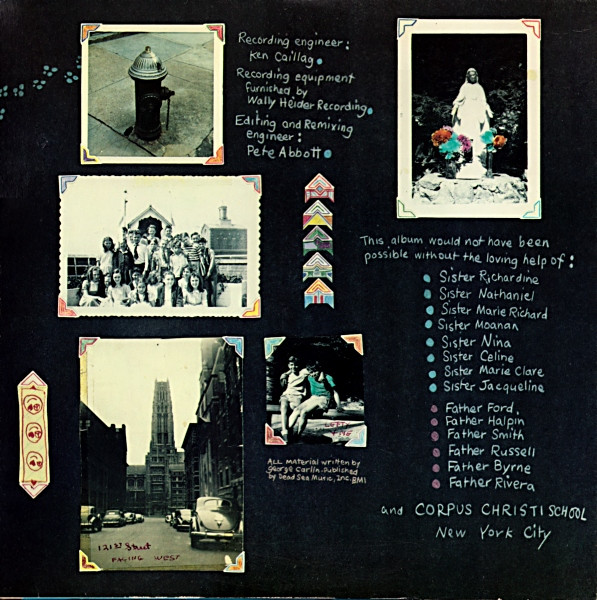 Recording engineer:
Ken Caillag.
Recording equipment
furnished by
Wally Heider Recording.
Editing and Remixing
engineer:
Pete Abbott
This album would not have been
possible without the loving help of:
Sister Richardine
Sister Nathaniel
Sister Marie Richard
Sister Moanan
Sister Nina
Sister Celine
Sister Marie Clare
Sister Jacqueline
Father Ford,
Father Halpin
Father Smith
Father Russell
Father Byrne
Father Rivera
and CORPUS CHRISTI SCHOOL
New York City
ALL Material written by
George Carlin. Published
by Dead Sea Music, Inc. BMI
121st Street
FACING WEST